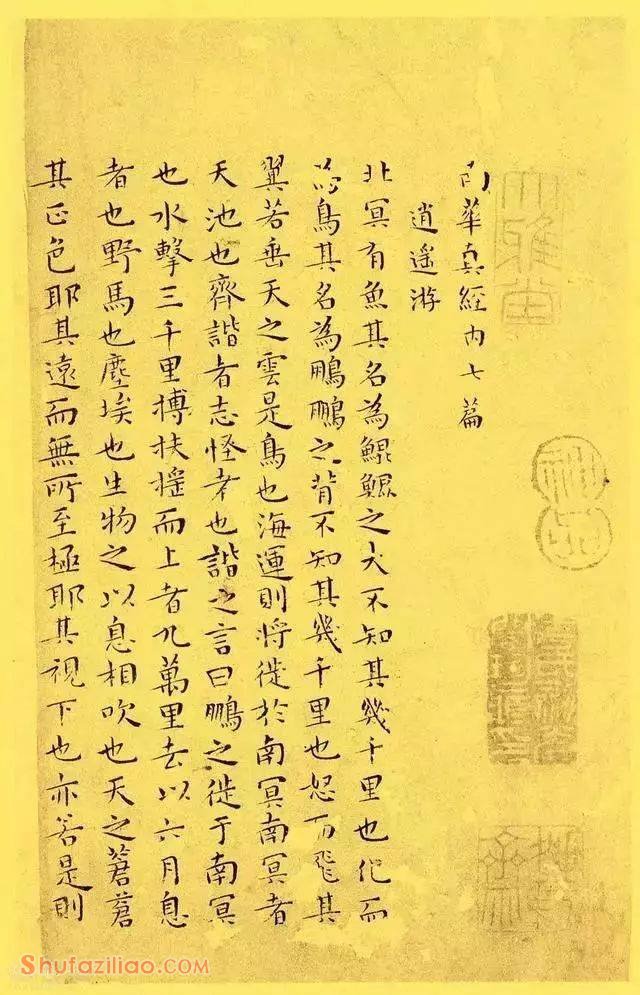 南華真經内七篇
逍遥游
北冥有魚其名為鯤鯤之大不知其幾千里也化而
為鳥其名為鵬鵬之背不知其幾千里也怒而飛其
翼若垂天之雲是鳥也海運則將徙於南冥南冥者
天池也齊諧者志怪者也諧之言曰鵬之徙于南冥
也水擊三千里搏扶摇而上者九萬里去以六月息
者也野馬也塵埃也生物之以息相吹也天之蒼蒼
其正色耶其遠而無所至極耶其視下也亦若是則
大雅堂
神品
Shufaziliao.COM